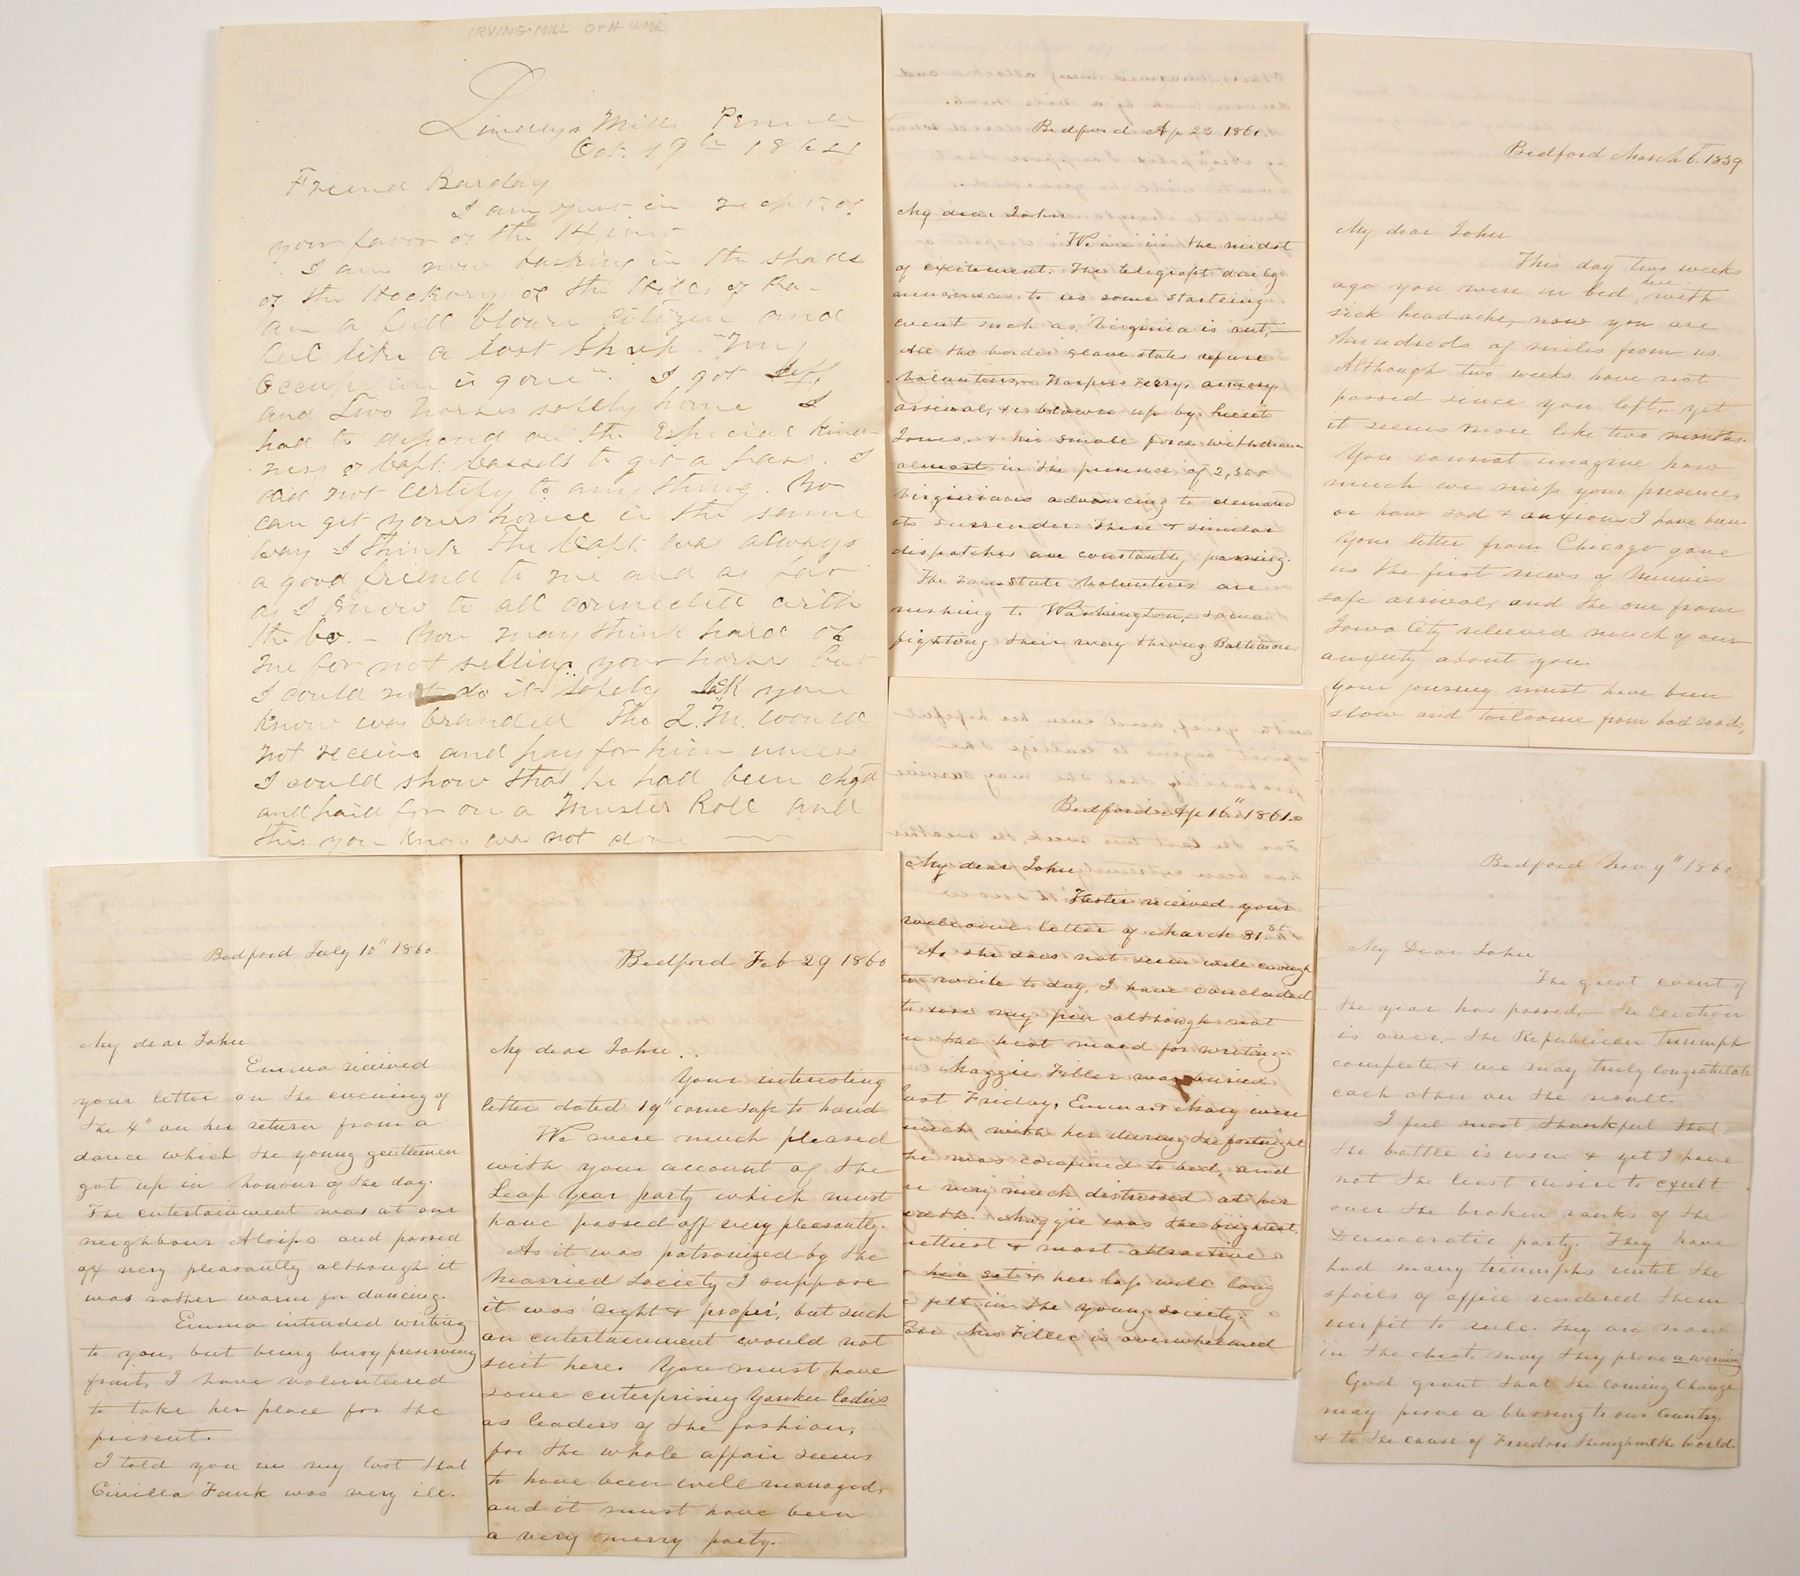 IRVING MILL
Mills Penna
Oct. 19th 1864
Friend Barclay
I am just in recpt. of
your favor of the 14 inst
I am now basking in the shade
of the Hickory of the Hills of Pa -
am a full blown citizen and
feel like a lost Sheep. "My
Occupation is gone". I got
and two horses safely home I
had to depend on the Especial kind-
ness of Capt. Cassels to get a pass. I
did not certify to any thing. You
can get yours home in the same
way I think The Capt was always
a good friend to me and as far
as I know to all connected with
the Co. - You may think hard of
me for not selling your horse but
I could not do it safely Jack you
know was branded The Q.M. would
not receive and pay for him unless
I could show that he had been chgd
and paid for on a Muster Roll and
this you know was not done
Bedford Ap 23 1861.
My dear John
We are in the midst
of excitement. The telegraph daily
announces to us some startling
event such as, Virginia is out,-
All the border slave states refuse
Volunteers, Harpers Ferry, armory,
arsenal, &c blown up by Lieut
Jones, & his small force withdrawn
almost in the presence of 2,500
Virginians advancing to demand
its surrender. These & similar
dispatches are constantly passing.
The free State Volunteers are
rushing to Washington, some
fighting their way throug Baltimore
Bedford March 6th 1859
My dear John
This day two weeks
ago you were in bed here with
sick headache, now you are
hundreds of miles from us.
Although two weeks have not
passed since you left, yet
it seems more like two months.
You cannot imagine how
much we miss your presence,
or how sad & anxious I have been
Your letter from Chicago gave
us the first news of
safe arrival, and the one from
Iowa City relieved much of our
anxiety about you.
Your journey must have been
slow and toilsome from bad roads,
Bedford Ap 16" 1861.
My dear John
Hester received your
welcome letter of March 31.st
As she does not seem well enough
to write to day, I have concluded
to use my pen although not
in the best mood for writing.
Maggie Filler was buried
last Friday, Emma & Mary were
much with her during the fortnight
she was confined to bed, and
are very much distressed at her
death. Maggie was the brightest,
prettiest & most attractive
her set & her loss will long
be felt in the young society.
Poor Mrs Filler is overwhelmed
Bedford Nov 9" 1860
My Dear John
The great event of
the year has passed,- the Election
is over, the Republican Triumph
complete, & we may truly congratulate
each other on the result.
I feel most thankful that
the battle is won & yet I have
not the least desire to exult
over the broken ranks of the
Democratic party. They have
had many triumphs until the
spoils of office rendered them
unfit to rule. They are now
in the dust. may they prove a warning
God grant that the coming Change
may prove a blessing to our Country.
& to the cause of Freedom throughout the World
Bedford July 10" 1860
My dear John
Emma received
your letter on the evening of
the 4" on her return from a
dance which the young gentlemen
got up in honour of the day.
The entertainment was at our
neighbour Alsips and passed
off very pleasantly although it
was rather warm for dancing.
Emma intended writing
to you, but being busy preserving
fruit, I have volunteered
to take her place for the
present.
I told you in my last that
Civilla Fauk was very ill.
Bedford Feb 29 1860
My dear John.
Your interesting
letter dated 19" came safe to hand
We were much pleased
with your account of the
Leap Year party which must
have passed off very pleasantly.
As it was patronized by the
married society I suppose
it was 'right & proper', but such
an entertainment would not
suit here. You must have
some enterprising Yankee ladies
as leaders of the fashion,
for the whole affair seems
to have been well managed,
and it must have been
a very merry party.